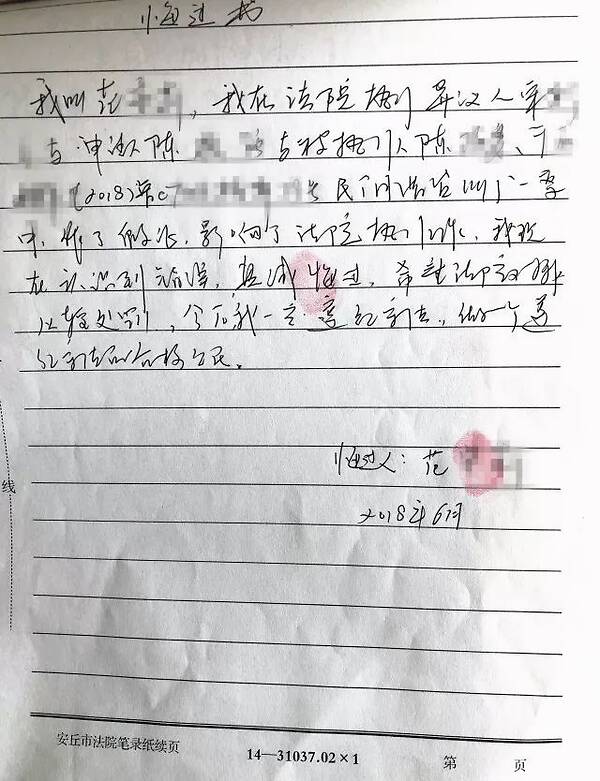 悔过书
我叫范，我在法院执行异议人宋
与申请人陈 与被执行人陈
(2018)鲁 号民间借贷纠纷一案
中，作了伪证，影响了法院执行工作，我现
在认识到错误，真诚悔过，希望法院
从轻处罚，今后我一定遵纪守法，做一个遵
纪守法的合格公民。
悔过人：范
2018年6月
线
安丘市法院笔录纸续页 14—31037.02×1 第 页